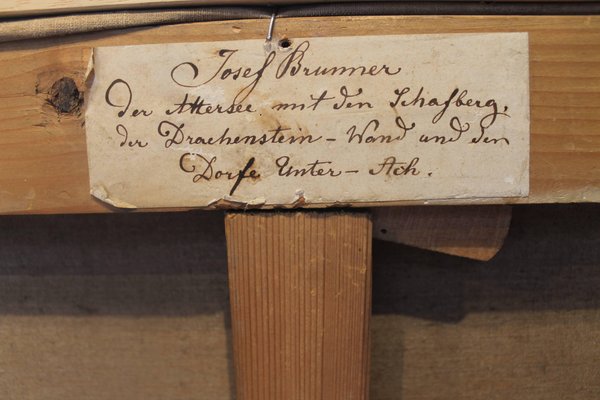 Josef Brunner
Der Attersee mit den Schafberg,
der Drachenstein-Wand und den
Dorfe Unter-Ach.